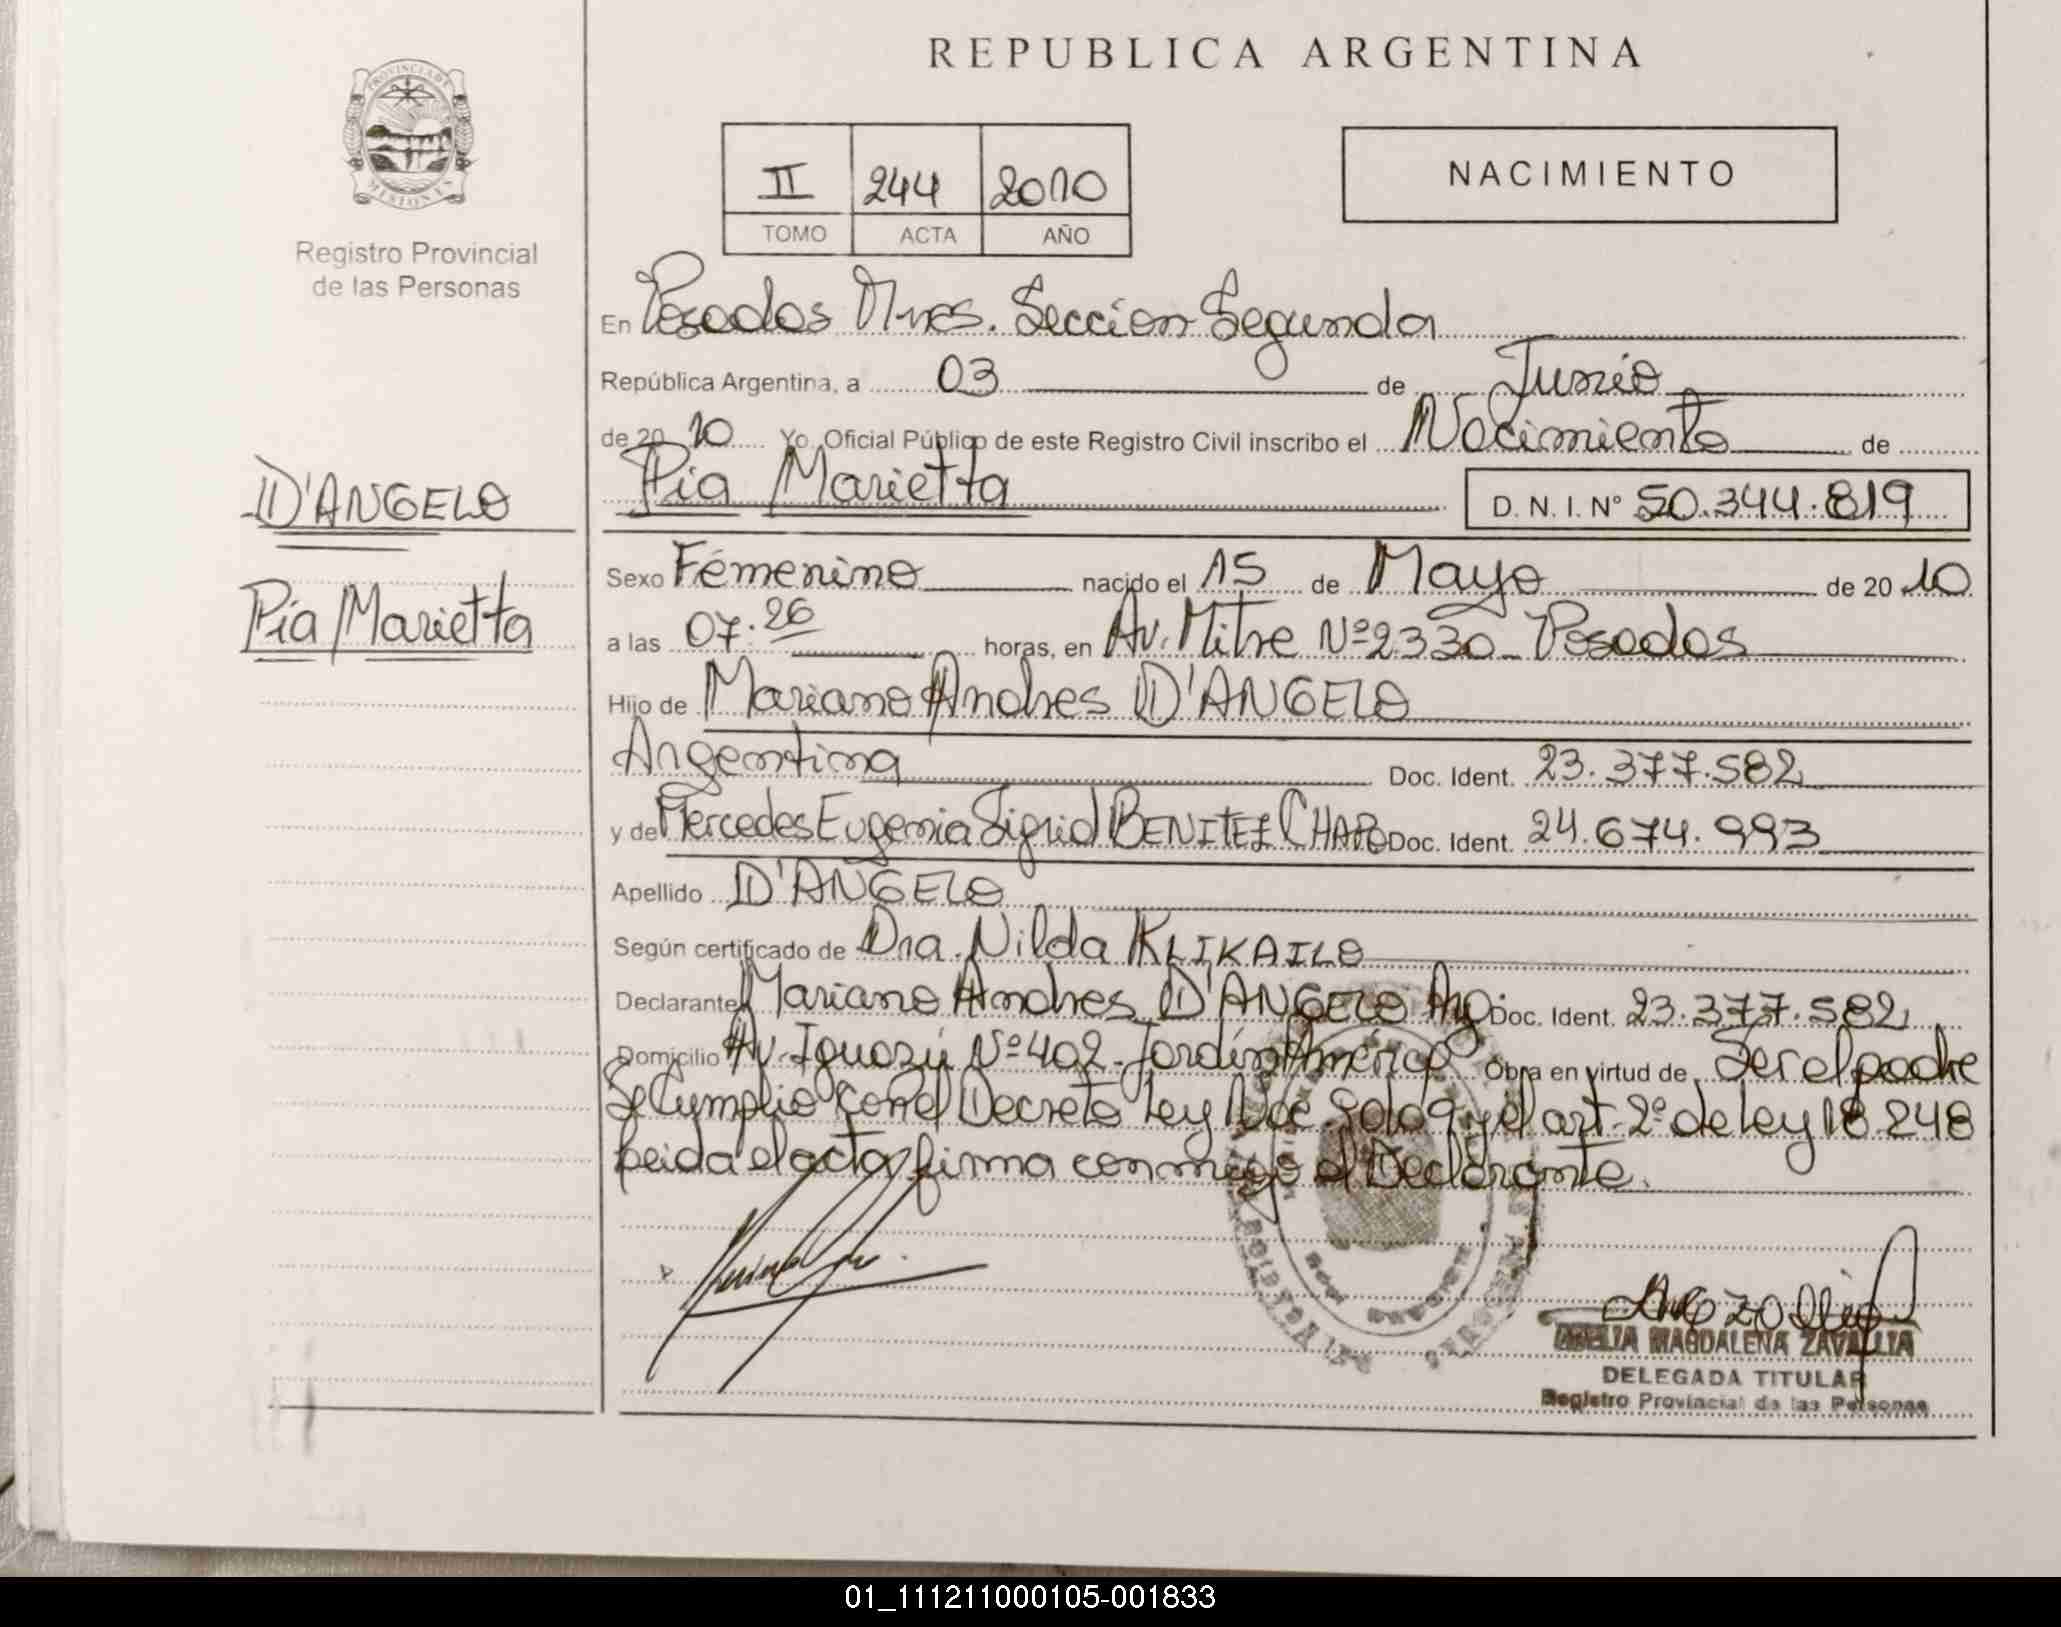 REPUBLICA ARGENTINA
PROVINCIA DE
MISIONES
Registro Provincial
de las Personas
II 244 2010
TOMO ACTA AÑO
NACIMIENTO
En Posadas Mnes. Sección Segunda
República Argentina, a 03 de Junio
de 2010 Yo Oficial Público de este Registro Civil inscribo el Nacimiento de
Pía Marietta D. N. I. Nº 50.344.819
D'ANGELO
Pía Marietta
Sexo Femenino nacido el 15 de Mayo de 2010
a las 07.26 horas, en Av. Mitre Nº 2330 - Posadas
Hijo de Mariano Andres D'ANGELO
Argentina Doc. Ident. 23.377.582
y de Mercedes Eugenia Sigrid BENITEZ CHAPO Doc. Ident. 24.674.993
Apellido D'ANGELO
Según certificado de Dra. Nilda KLIKAILO
Declarante Mariano Andres D'ANGELO Arg. Doc. Ident. 23.377.582
Domicilio Av. Iguazú Nº 402 - Jardín América Obra en virtud de Ser el padre
Se Cumplio con el Decreto Ley Nº y el art. 2º de Ley 18.248
Leida el acta firma conmigo el Declarante.
MAGDALENA ZAVALLIA
DELEGADA TITULAR
Registro Provincial de las Personas
01_111211000105-001833